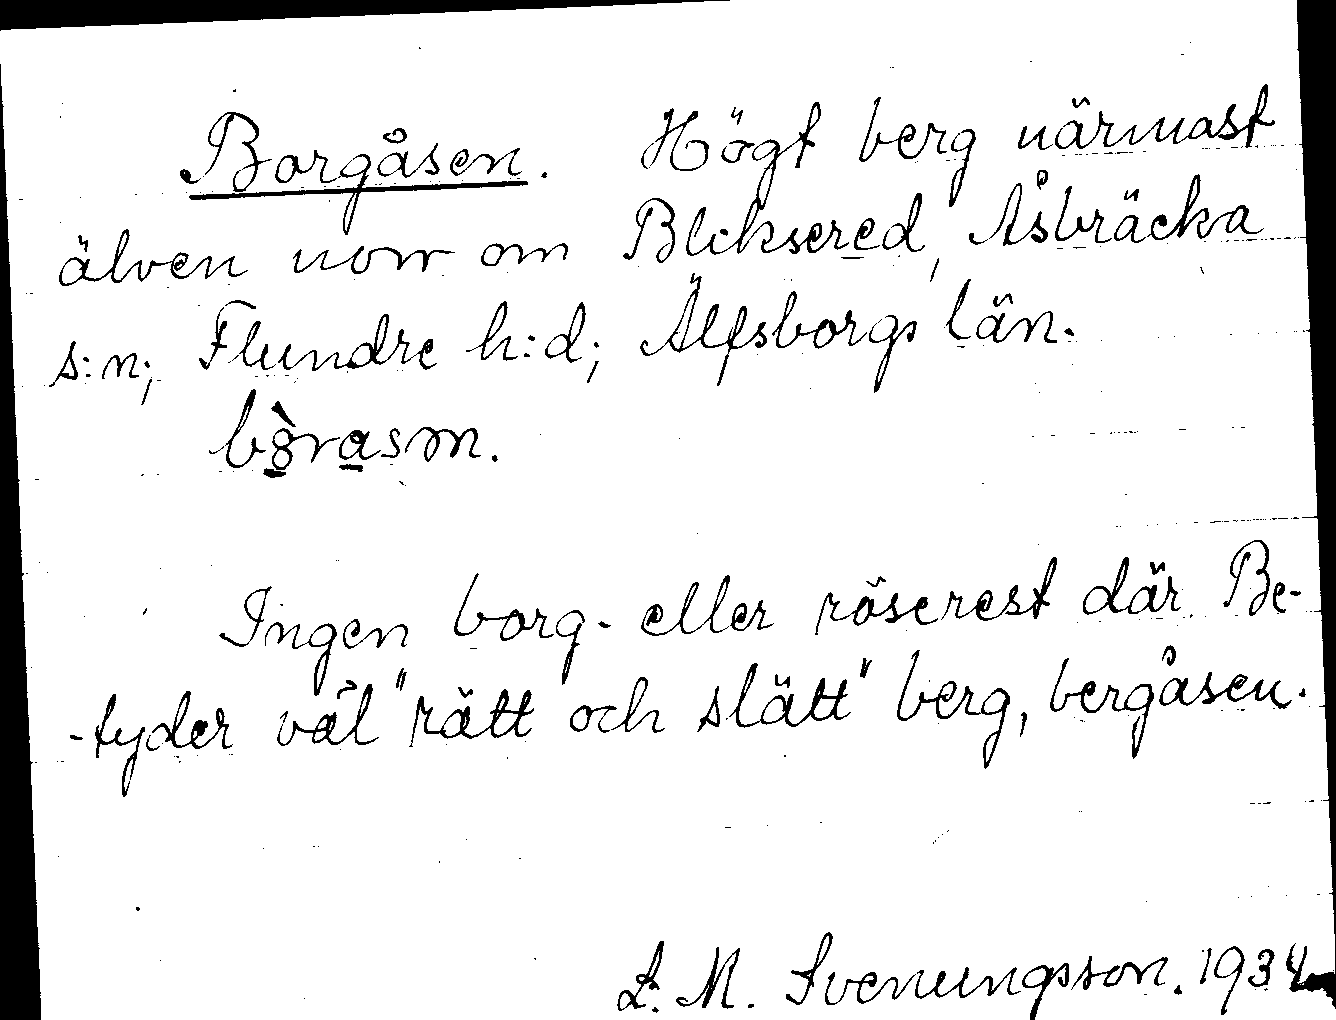 Borgåsen. Högt berg närmast
älven norr om Bliksered, Åsbräcka
s:n; Flundre h:d; Älfsborgs län.
Ingen borg- eller röserest där. Be-
-tyder väl "rätt och slätt" berg, bergåsen.
L. M. Svenungsson. 1934